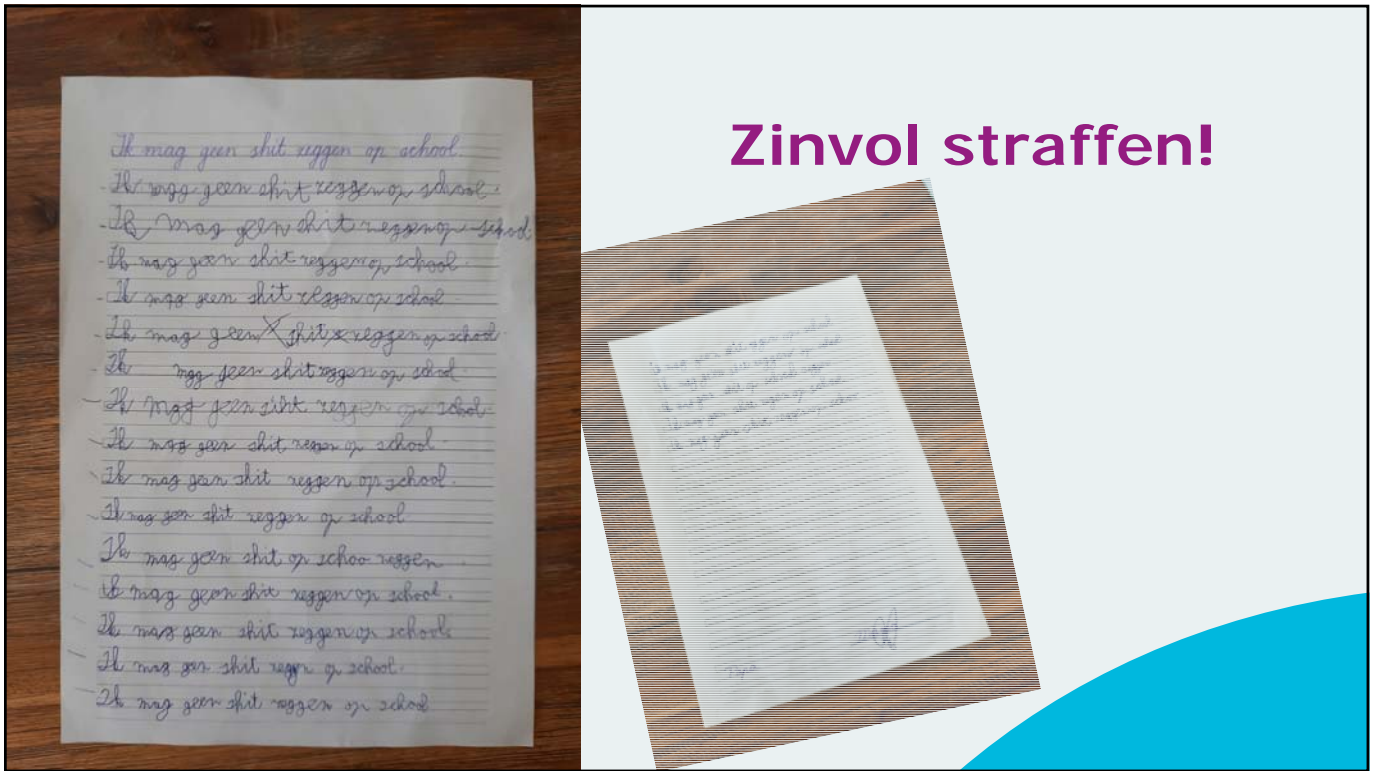 Ik mag geen shit zeggen op school.
- Ik mag geen shit zeggen op school.
- Ik mag geen shit zeggen op school
- Ik mag geen shit zeggen op school.
- Ik mag geen shit zeggen op school.
- Ik mag geen shit zeggen op school.
- Ik mag geen shit zeggen op school.
- Ik mag geen siht zeggen op school.
- Ik mag geen shit zeggen op school.
- Ik mag geen shit zeggen op school.
- Ik mag geen shit zeggen op school
- Ik mag geen shit op schoo zeggen.
- ik mag geen shit zeggen op school.
- Ik mag geen shit zeggen op school
- Ik mag gen shit zeggen op school.
- Ik mag geen shit zeggen op school
Zinvol straffen!
Ik mag geen shit zeggen op school
Ik mag geen shit zeggen op school
Ik mag geen shit op school zeggen
Ik mag geen shit zeggen op school
Ik mag geen shit zeggen op school
Papa